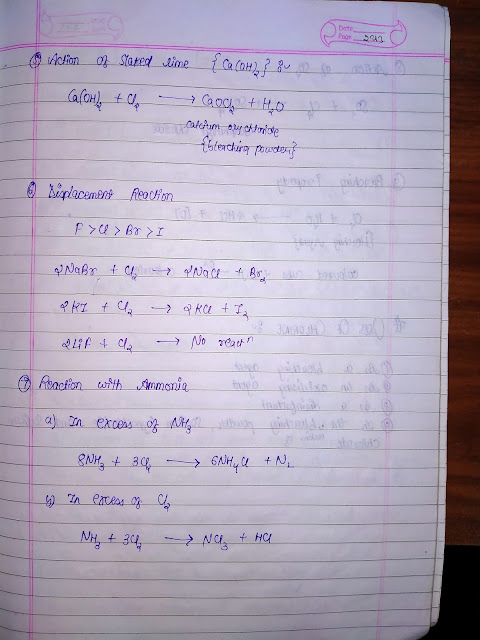 Date
Page 202
⑤ Action of Slaked lime {Ca(OH)₂} :~
Ca(OH)₂ + Cl₂ ⟶ CaOCl₂ + H₂O
calcium oxychloride
{bleaching powder}
⑥ Displacement Reaction
F > Cl > Br > I
2NaBr + Cl₂ ⟶ 2NaCl + Br₂
2KI + Cl₂ ⟶ 2KCl + I₂
2LiF + Cl₂ ⟶ No reactⁿ
⑦ Reaction with Ammonia
a) In excess of NH₃
8NH₃ + 3Cl₂ ⟶ 6NH₄Cl + N₂
b) In excess of Cl₂
NH₃ + 3Cl₂ ⟶ NCl₃ + HCl